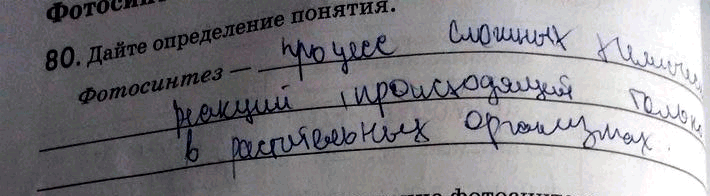 Фотосин
80. Дайте определение понятия.
Фотосинтез — процесс сложных химичес
реакций, происходящий только
в растительных организмах.